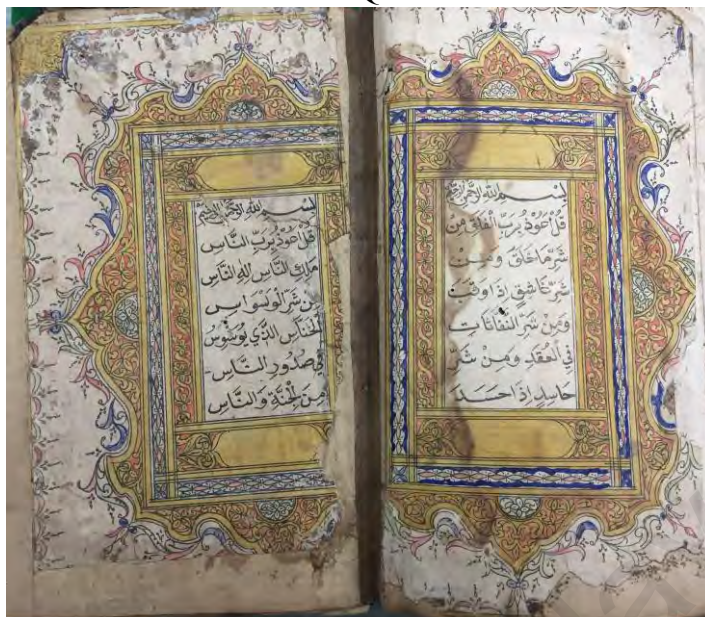 بِسْمِ اللهِ الرَّحْمٰنِ الرَّحِيْمِ
قُلْ اَعُوْذُ بِرَبِّ الْفَلَقِ مِنْ
شَرِّ مَا خَلَقَ وَمِنْ
شَرِّ غَاسِقٍ اِذَا وَقَبَ
وَمِنْ شَرِّ النَّفَّاثَاتِ
فِي الْعُقَدِ وَمِنْ شَرِّ
حَاسِدٍ اِذَا حَسَدَ
بِسْمِ اللهِ الرَّحْمٰنِ الرَّحِيْمِ
قُلْ اَعُوْذُ بِرَبِّ النَّاسِ
مَلِكِ النَّاسِ اِلٰهِ النَّاسِ
مِنْ شَرِّ الْوَسْوَاسِ
الْخَنَّاسِ الَّذِي يُوَسْوِسُ
فِي صُدُوْرِ النَّاسِ
مِنَ الْجِنَّةِ وَالنَّاسِ